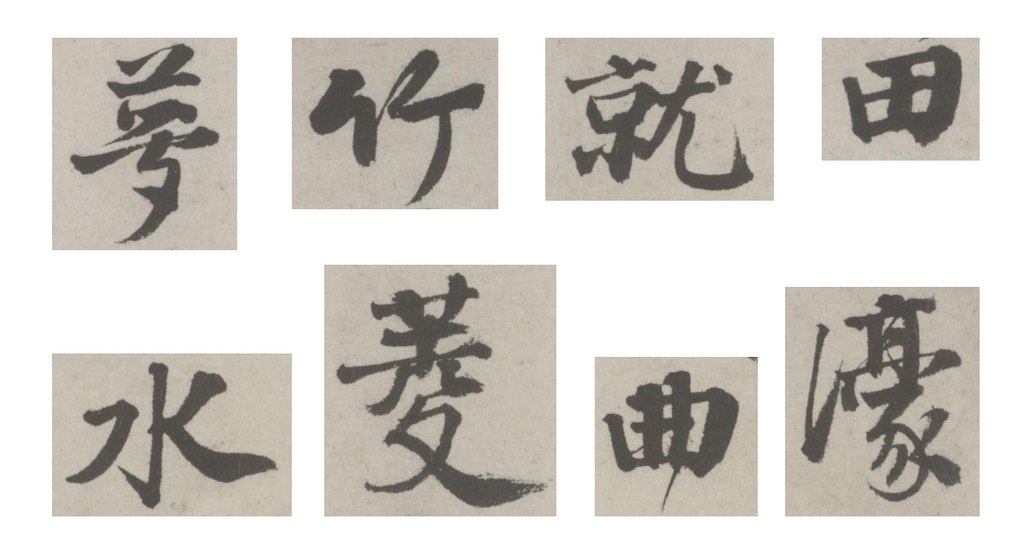 夢竹就田
水菱曲濠